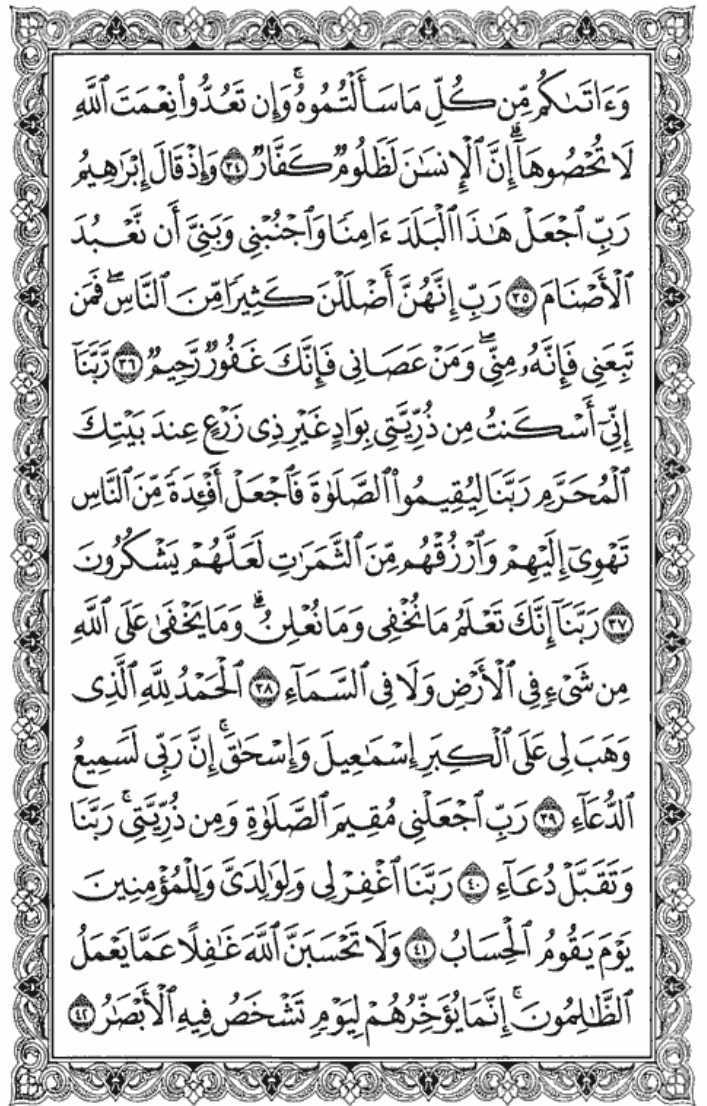 وَءَاتَىٰكُم مِّن كُلِّ مَا سَأَلْتُمُوهُ ۚ وَإِن تَعُدُّوا۟ نِعْمَتَ ٱللَّهِ
لَا تُحْصُوهَآ ۗ إِنَّ ٱلْإِنسَـٰنَ لَظَلُومٌ كَفَّارٌ ٣٤ وَإِذْ قَالَ إِبْرَٰهِيمُ
رَبِّ ٱجْعَلْ هَـٰذَا ٱلْبَلَدَ ءَامِنًا وَٱجْنُبْنِى وَبَنِىَّ أَن نَّعْبُدَ
ٱلْأَصْنَامَ ٣٥ رَبِّ إِنَّهُنَّ أَضْلَلْنَ كَثِيرًا مِّنَ ٱلنَّاسِ ۖ فَمَن
تَبِعَنِى فَإِنَّهُۥ مِنِّى ۖ وَمَنْ عَصَانِى فَإِنَّكَ غَفُورٌ رَّحِيمٌ ٣٦ رَّبَّنَآ
إِنِّىٓ أَسْكَنتُ مِن ذُرِّيَّتِى بِوَادٍ غَيْرِ ذِى زَرْعٍ عِندَ بَيْتِكَ
ٱلْمُحَرَّمِ رَبَّنَا لِيُقِيمُوا۟ ٱلصَّلَوٰةَ فَٱجْعَلْ أَفْـِٔدَةً مِّنَ ٱلنَّاسِ
تَهْوِىٓ إِلَيْهِمْ وَٱرْزُقْهُم مِّنَ ٱلثَّمَرَٰتِ لَعَلَّهُمْ يَشْكُرُونَ
٣٧ رَبَّنَآ إِنَّكَ تَعْلَمُ مَا نُخْفِى وَمَا نُعْلِنُ ۗ وَمَا يَخْفَىٰ عَلَى ٱللَّهِ
مِن شَىْءٍ فِى ٱلْأَرْضِ وَلَا فِى ٱلسَّمَآءِ ٣٨ ٱلْحَمْدُ لِلَّهِ ٱلَّذِى
وَهَبَ لِى عَلَى ٱلْكِبَرِ إِسْمَـٰعِيلَ وَإِسْحَـٰقَ ۚ إِنَّ رَبِّى لَسَمِيعُ
ٱلدُّعَآءِ ٣٩ رَبِّ ٱجْعَلْنِى مُقِيمَ ٱلصَّلَوٰةِ وَمِن ذُرِّيَّتِى ۚ رَبَّنَا
وَتَقَبَّلْ دُعَآءِ ٤٠ رَبَّنَا ٱغْفِرْ لِى وَلِوَٰلِدَىَّ وَلِلْمُؤْمِنِينَ
يَوْمَ يَقُومُ ٱلْحِسَابُ ٤١ وَلَا تَحْسَبَنَّ ٱللَّهَ غَـٰفِلًا عَمَّا يَعْمَلُ
ٱلظَّـٰلِمُونَ ۚ إِنَّمَا يُؤَخِّرُهُمْ لِيَوْمٍ تَشْخَصُ فِيهِ ٱلْأَبْصَـٰرُ ٤٢